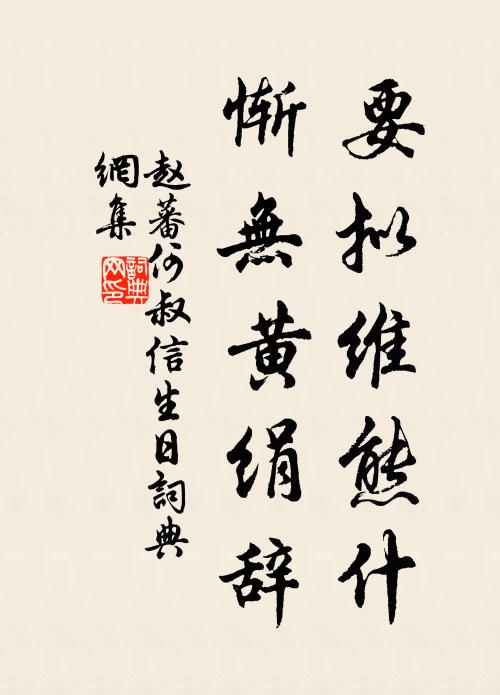 要拟维熊什
惭無黄绢辞
赵蕃何叔信生日詞典
網集
詞典網印